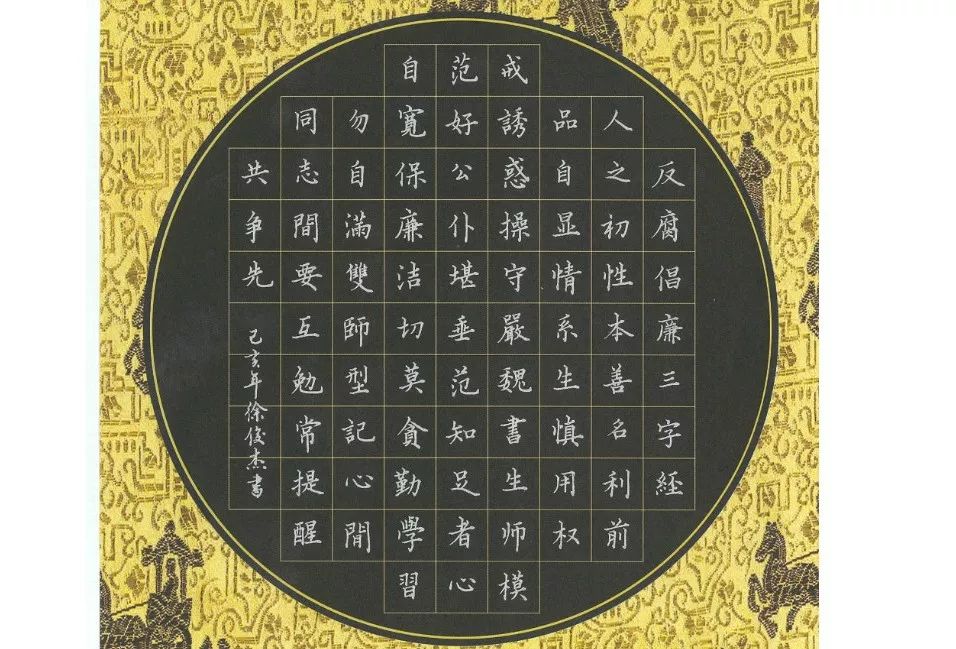 反腐倡廉三字經
人之初性本善名利前
品自显情系生慎用权
戒誘惑操守嚴魏書生师模
范好公仆堪垂范知足者心
自寬保廉洁切莫貪勤學習
勿自滿雙師型記心間
同志間要互勉常提醒
共争先
己亥年徐俊杰書